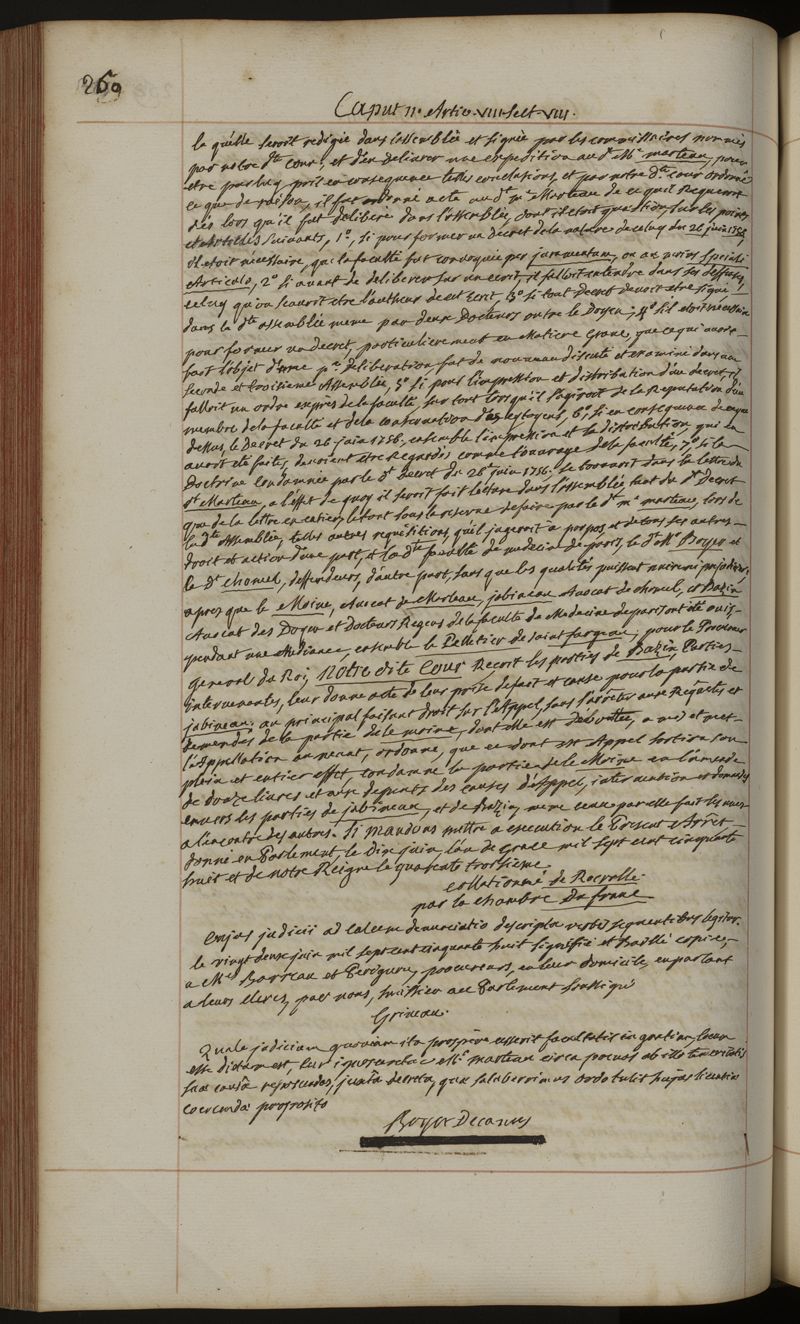 260
Caput II. Artic. VIII Sect VIII.
laquelle seroit redigée dans l'assemblée et signée par les commissaires nommés
par notre dte Cour, et d'en delivrer une expedition au dt Me marteau, pour
etre par luy pris en consequence telles conclusions, et par notre dte cour ordonné
ce que de raison, il fut donné acte au dt me Marteau de ce qu'il Requeroit
dès lors qu'il fut deliberé dans l'assemblée, dont il etoit question sur les points
et articles suivants, 1°, si pour former un Decret de la nature de celuy du 26 juin 1756,
il etoit necessaire, que la faculté fut convoquée per juramentum, ou au moins speciali
Articulo, 2° si avant de deliberer sur un ecrit, il falloit entendre dans ses deffenses,
celuy qu'on scauroit etre l'autheur de cet Ecrit, 3° si tout Decret devoit etre signé
dans la dte assemblée meme par deux Docteurs outre le Doyen, 4° s'il etoit necessaire
pour former un decret, particulierement en Matiere Grave, que ce qui avoit
fait l'objet d'une pre deliberation fut de nouveau discuté et examiné dans une
seconde et troisieme Assemblée, 5° si pour l'impression et distribution d'un decret, il
falloit un ordre exprès de la faculté sur tout lorsqu'il s'agiroit de la Reputation d'un
membre de la faculté et de la consternation des cytoyens, 6° si en consequence de ce que
dessus, le Decret du 26 juin 1756, ensemble l'impression et la distribution qui en
avoit eté faites, devoient etre Regardés comme l'ouvrage de la faculté, 7° si la
Doctrine condamnée par le dt Decret du 26 juin 1756. se trouvoit dans la lettre du
dt Marteau, a l'effet de quoy il seroit fait lecture dans l'assemblée, tant du dt Decret
que de la lettre en entier, le tout sous la reserve de faire par le dt me marteau, lors de
la dte Assemblée, telles autres requisitions, qu'il jugeroit a propos et de tous ses autres
droits et action d'une part, et la dte faculté de medecine de paris, le dt Me Boyer et
le dt chomel, deffendeurs, d'autre part, sans que les qualités puissent nuire ni prejudicier,
apres que le Moine, Avocat de Marteau, jabineau Avocat de chomel, et Bazin
Avocat des Doyen et Docteurs Regens de la faculté de Medecine de paris ont eté ouis
pendant une Audiance, ensemble le Pelletier de saint fargeau, pour le Procureur
General du Roi; Notre dite Cour Recoit les parties de Bazin, Parties
intervenantes, leur donne acte de leur prise de fait et cause pour la partie de
jabineau; au principal faisant droit sur l'Appel, sans s'arreter aux Requetes et
demandes de la partie de le moine, dont elle est déboutée, a mis et met
l'appellation au neant, ordonne, que ce dont est Appel sortira son
plein et entier effet, condamne la partie de le Moine en l'amende
de douze livres et aux depens des causes d'Appel, intervention et demandes
envers les parties de jabineau, et de Bazin, meme ceux par elle fait les uns
a l'encontre des autres. Si Mandons mettre a execution le Present Arret
donné en Parlement, le Dix juin, l'an de grace mil sept cent cinquante
huit et de notre Reigne le quarante troisieme.
collationné de
par la chambre Du franc
Cujus judicii ad calcem denunciatio descripta verbis sequentibus legitur.
le vingt deux juin mil sept cent cinquante huit signifié et Baillé copie,
a Mes Barreau et Perigury, procureurs, en leur domicile, en parlant
a leurs clercs, par nous, huissier au Parlement soussigné
Grineau.
Quale judicium quoniam ita prospere esserit facultatis in gratiam, locum
esse dictum est, cur Mo marteau circa poenas ab illo temeritatis
suae causâ reposcendas, juxta decreta, quae saluberrimus ordo tulit hujus licentiae
coercendae proposito
Boyer Decanus